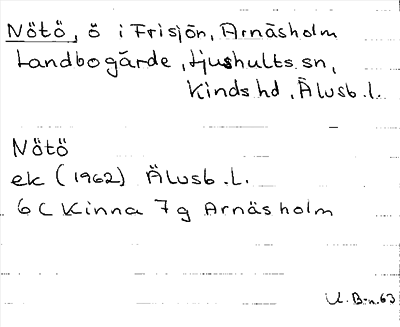 Nötö, ö i Frisjön, Arnäsholm
Landbogärde, Ljushults sn,
Kinds hd, Älvsb. l.
Nötö
ek (1962) Älvsb. l.
6 C Kinna 7 g Arnäsholm
U. B-n. 63